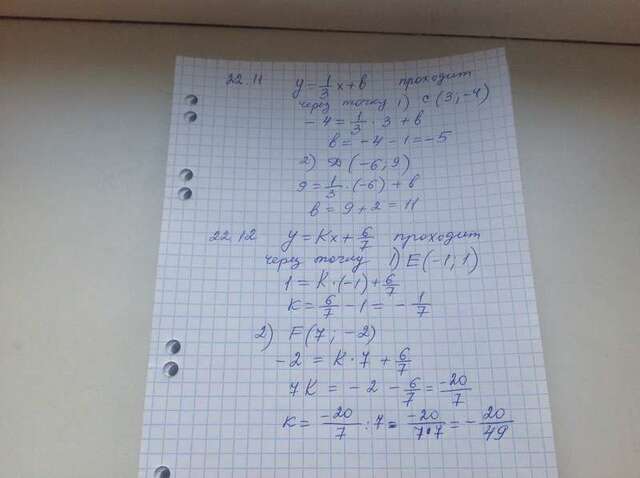 22.11 y = 1/3 x + b проходит
через точку 1) C (3; -4)
-4 = 1/3 · 3 + b
b = -4 - 1 = -5
2) D (-6, 9)
9 = 1/3 · (-6) + b
b = 9 + 2 = 11
22.12 y = Kx + 6/7 проходит
через точку 1) E (-1; 1)
1 = K · (-1) + 6/7
K = 6/7 - 1 = - 1/7
2) F (7; -2)
-2 = K · 7 + 6/7
7K = -2 - 6/7 = -20/7
K = -20/7 : 7 = -20/7·7 = - 20/49